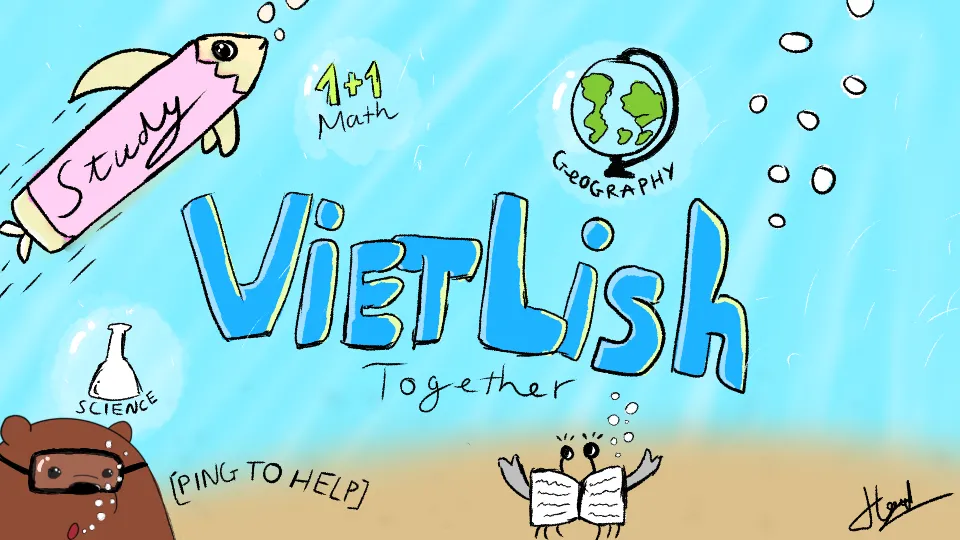 Study
1+1
Math
GEOGRAPHY
VIETLish
Together
SCIENCE
[PING TO HELP]